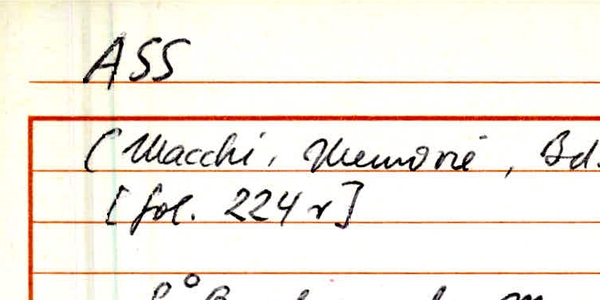 ASS
(Macchi, Memorie, Bd.
[fol. 224 r]